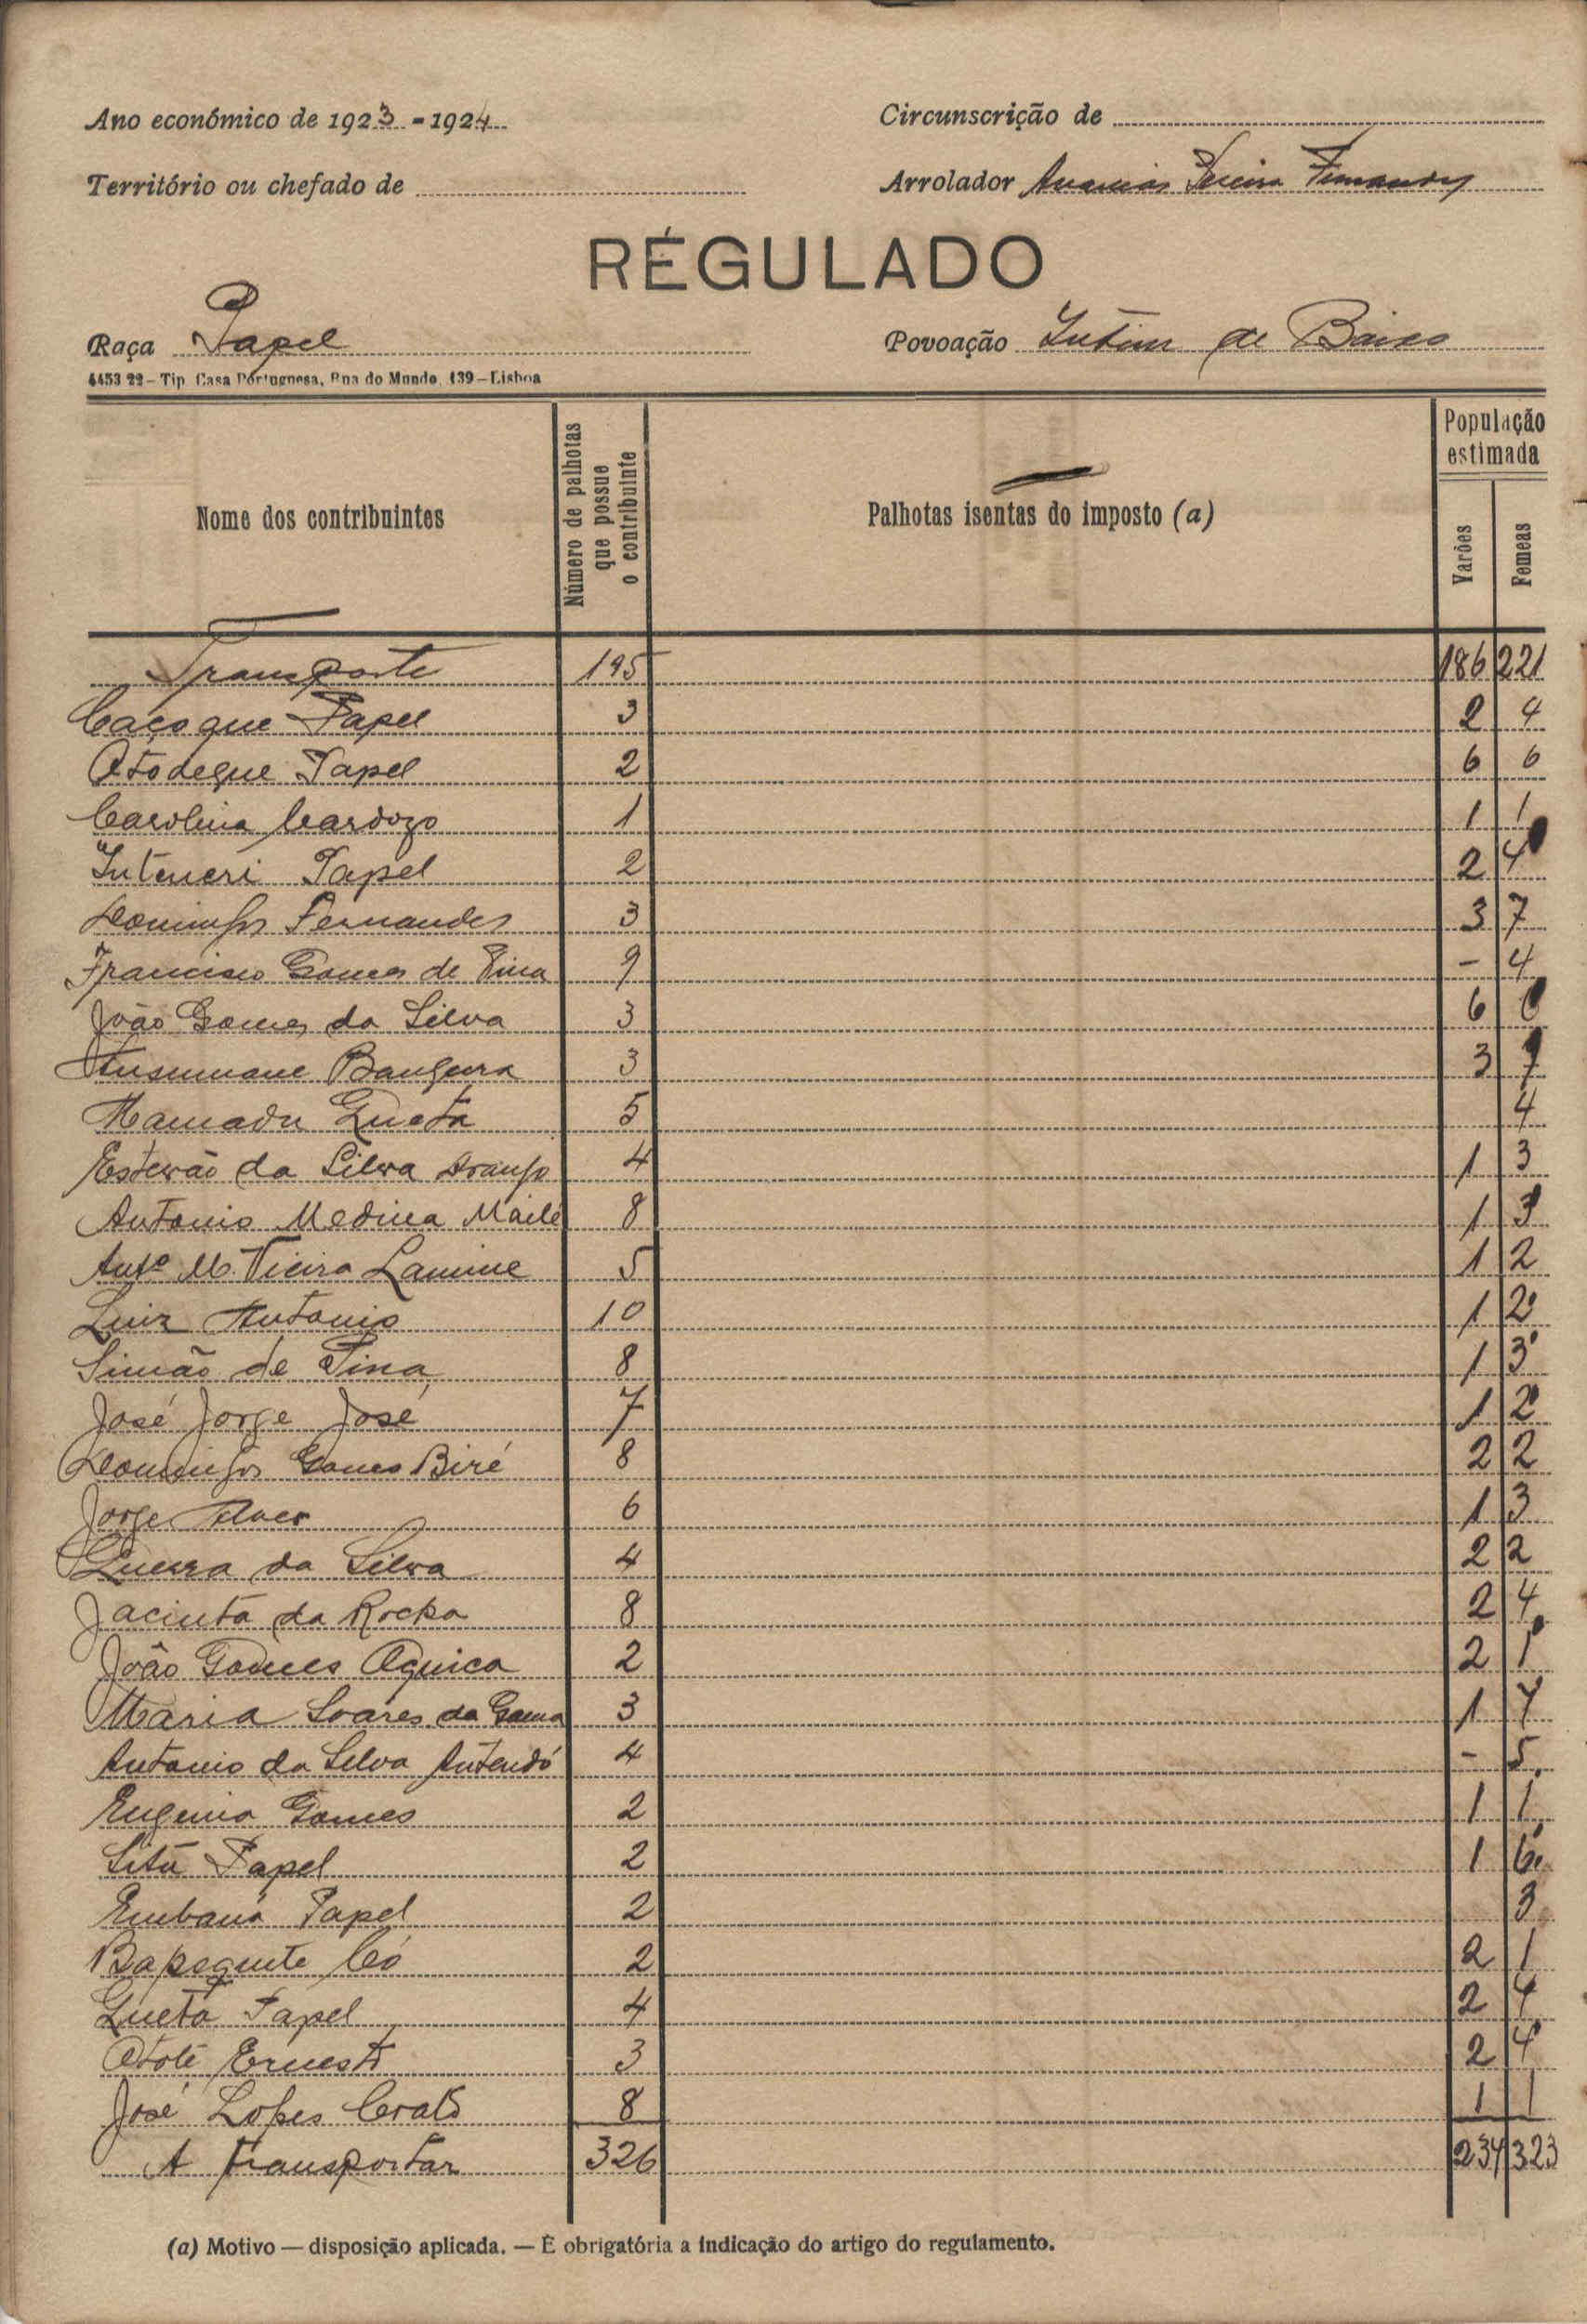 Ano económico de 1923-1924
Circunscrição de
Território ou chefado de
Arrolador Ananias Pereira Fernandes
RÉGULADO
Raça Papel
Povoação Intim de Baixo
4453 22 – Tip. Casa Portuguesa, Rua do Mundo, 139 – Lisboa
Nome dos contribuintes Número de palhotas que possue o contribuinte Palhotas isentas do imposto (a) População estimada Varões Femeas
Transporte 195 186 221
Caçoque Papel 3 2 4
Otodeque Papel 2 6 6
Carolina Cardozo 1 1 1
Inteneri Papel 2 2 4
Domingos Fernandes 3 3 7
Francisco Gomes de Pina 9 - 4
João Gomes da Silva 3 6
Ansumane Bangura 3 3 7
Mamadu Queta 5 4
Estevão da Silva Araujo 4 1 3
Antonio Medina Mailé 8 1 3
Antº M. Vieira Lamine 5 1 2
Luiz Antonio 10 1 2
Simão de Pina 8 1 3
José Jorge José 7 1 2
Domingos Gomes Biré 8 2 2
Jorge Alves 6 1 3
Guerra da Silva 4 2 2
Jacinta da Rocha 8 2 4
João Gomes Oquica 2 2 1
Maria Soares da Gama 3 1 4
Antonio da Silva Antendó 4 - 5
Eugenio Gomes 2 1 1
Sitú Papel 2 1 6
Embaná Papel 2 3
Bapequite Có 2 2 1
Queta Papel 4 2 4
Ototé Ernesto 3 2 4
José Lopes 8 1 1
A transportar 326 234 323
(a) Motivo — disposição aplicada. — É obrigatória a indicação do artigo do regulamento.